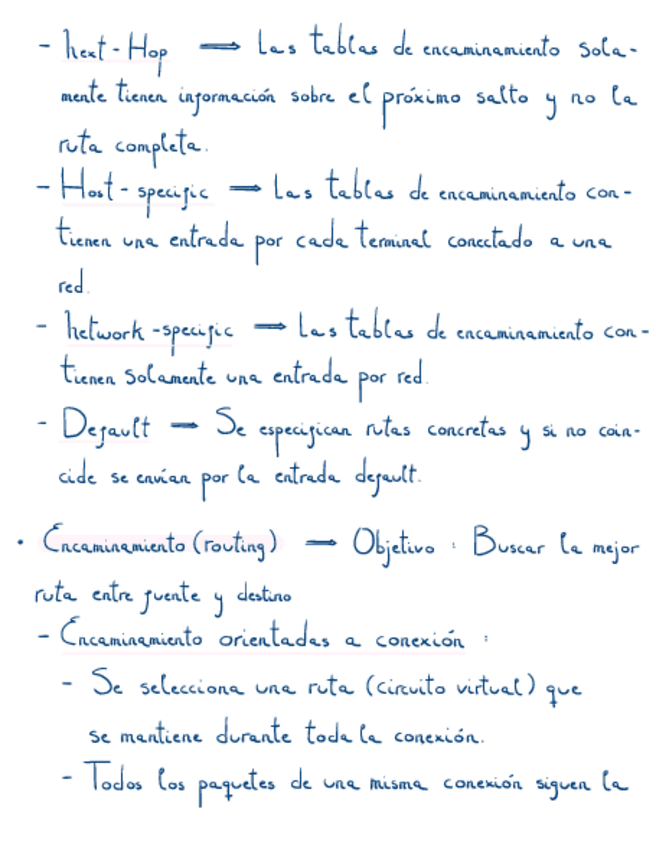 - Next-Hop ⟹ Las tablas de encaminamiento sola-
mente tienen información sobre el próximo salto y no la
ruta completa.
- Host-specific ⟹ Las tablas de encaminamiento con-
tienen una entrada por cada terminal conectado a una
red.
- Network-specific ⟹ Las tablas de encaminamiento con-
tienen solamente una entrada por red.
- Default ⟹ Se especifican rutas concretas y si no coin-
cide se envían por la entrada default.
• Encaminamiento (routing) ⟹ Objetivo : Buscar la mejor
ruta entre fuente y destino
- Encaminamiento orientadas a conexión :
- Se selecciona una ruta (circuito virtual) que
se mantiene durante toda la conexión.
- Todos los paquetes de una misma conexión siguen la